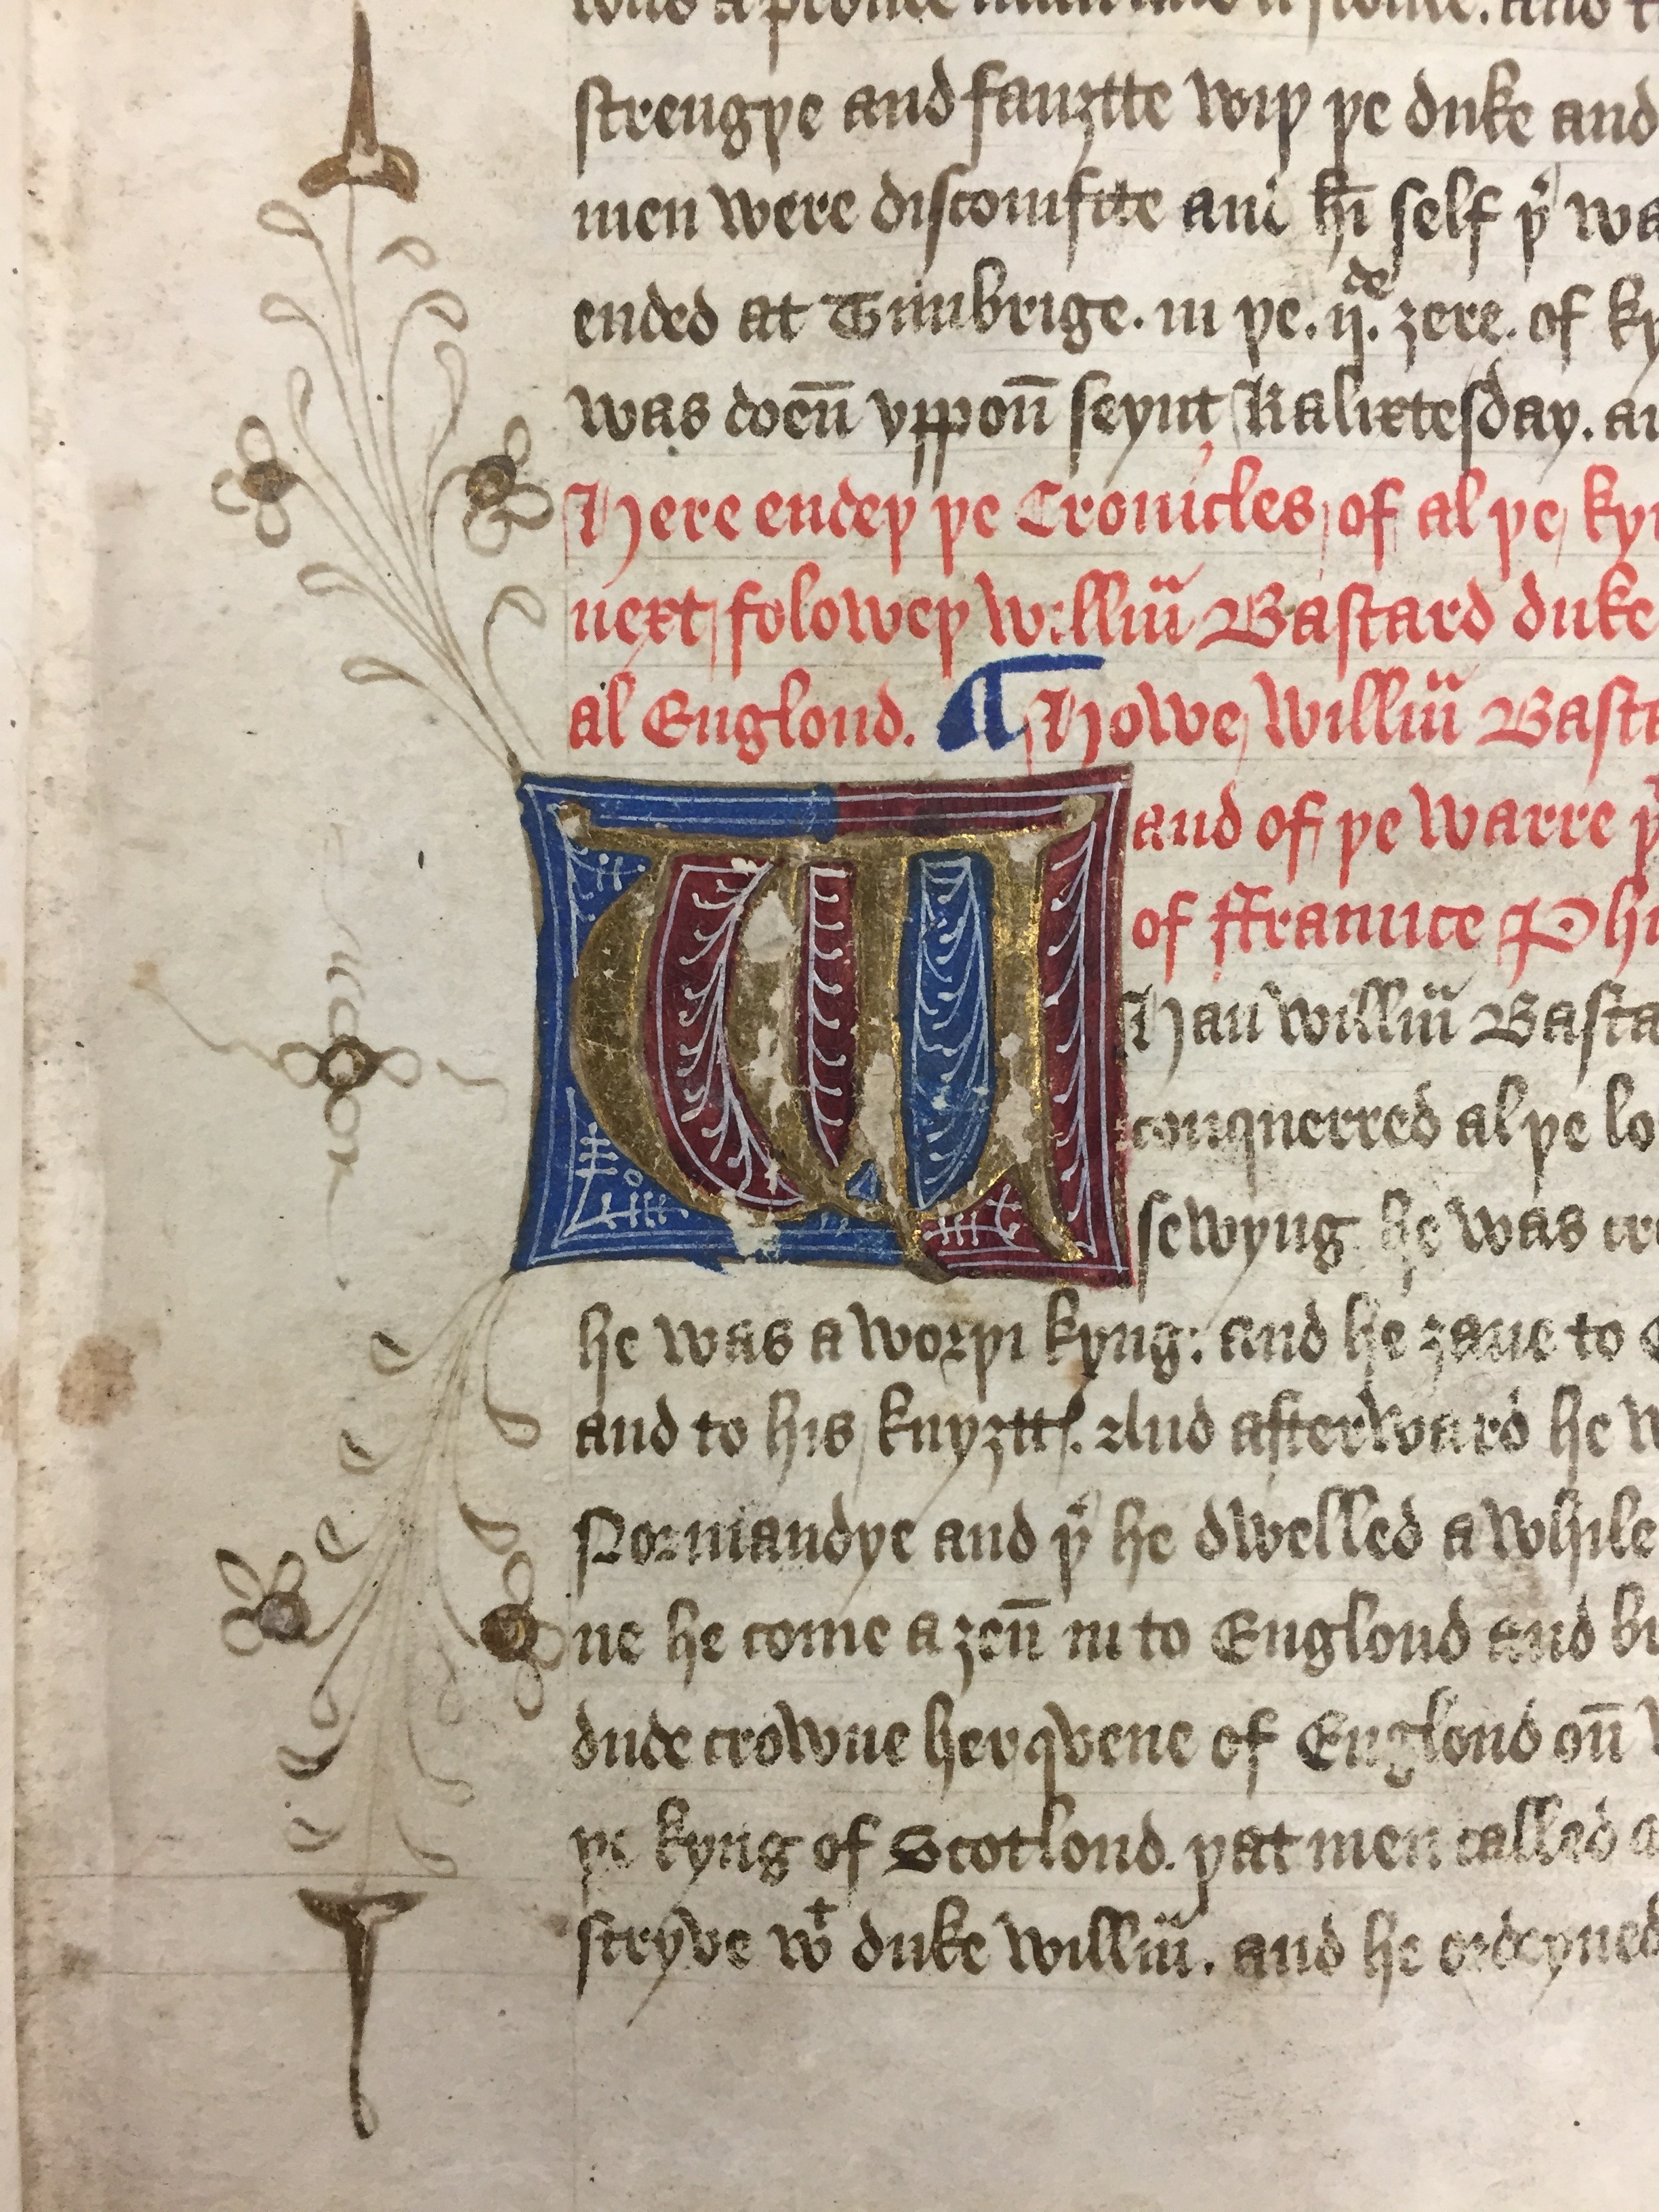 strengþe and fauȝtte wiþ þe duke and
men were discomfitte and hī self þ͛ wa
ended at Timbrige. in þe. ij.de ȝere. of ky
was doen̄ vppon̄ seynt Kalixtesday. an
Here endeþ þe Cronicles of al þe kyn
next foloweþ Willim̄ Bastard duke
al Englond. ¶ Howe Willim̄ Basta
and of þe warre þ͛
of ffraunce Phi
WHan willim̄ Basta
conquerred al þe lo
sewyng he was cro
he was a worþi kyng: and he ȝaue to
and to his knyȝttꝭ. And afterward he w
Normandye and þ͛ he dwelled a while
ne he come aȝen̄ in to Englond and
dude crowne her qvene of Englond on̄
þe kyng of Scotlond. þat men called a
stryve wᵗ duke willim̄. and he ordeyned